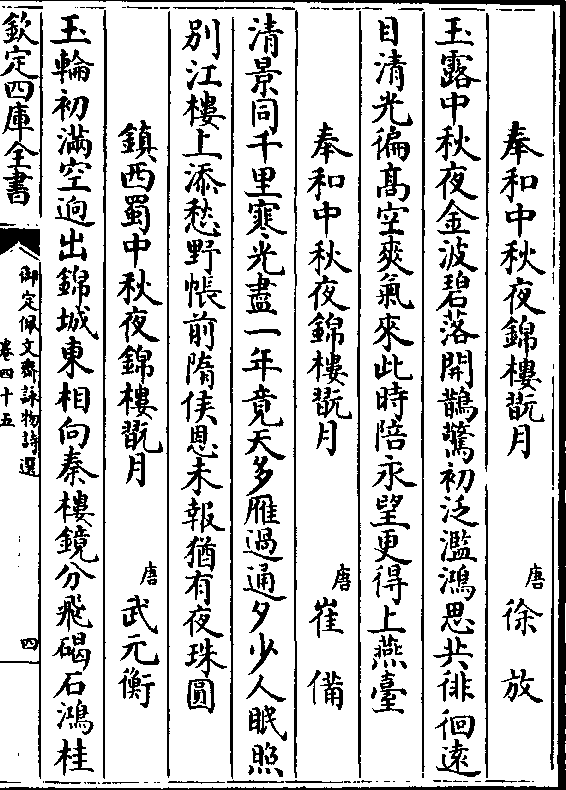 奉和中秋夜錦樓翫月 唐 徐放
玉露中秋夜金波碧落開鵲驚初泛濫鴻思共徘徊遠
目清光徧髙空爽氣來此時陪永望更得上燕臺
奉和中秋夜錦樓翫月 唐 崔備
清景同千里寒光盡一年竟天多雁過通夕少人眠照
別江樓上添愁野帳前隋侯恩未報猶有夜珠圓
鎮西蜀中秋夜錦樓翫月 唐 武元衡
玉輪初滿空迥出錦城東相向秦樓鏡分飛碣石鴻桂
欽定四庫全書
御定佩文齋詠物詩選
卷四十五
四